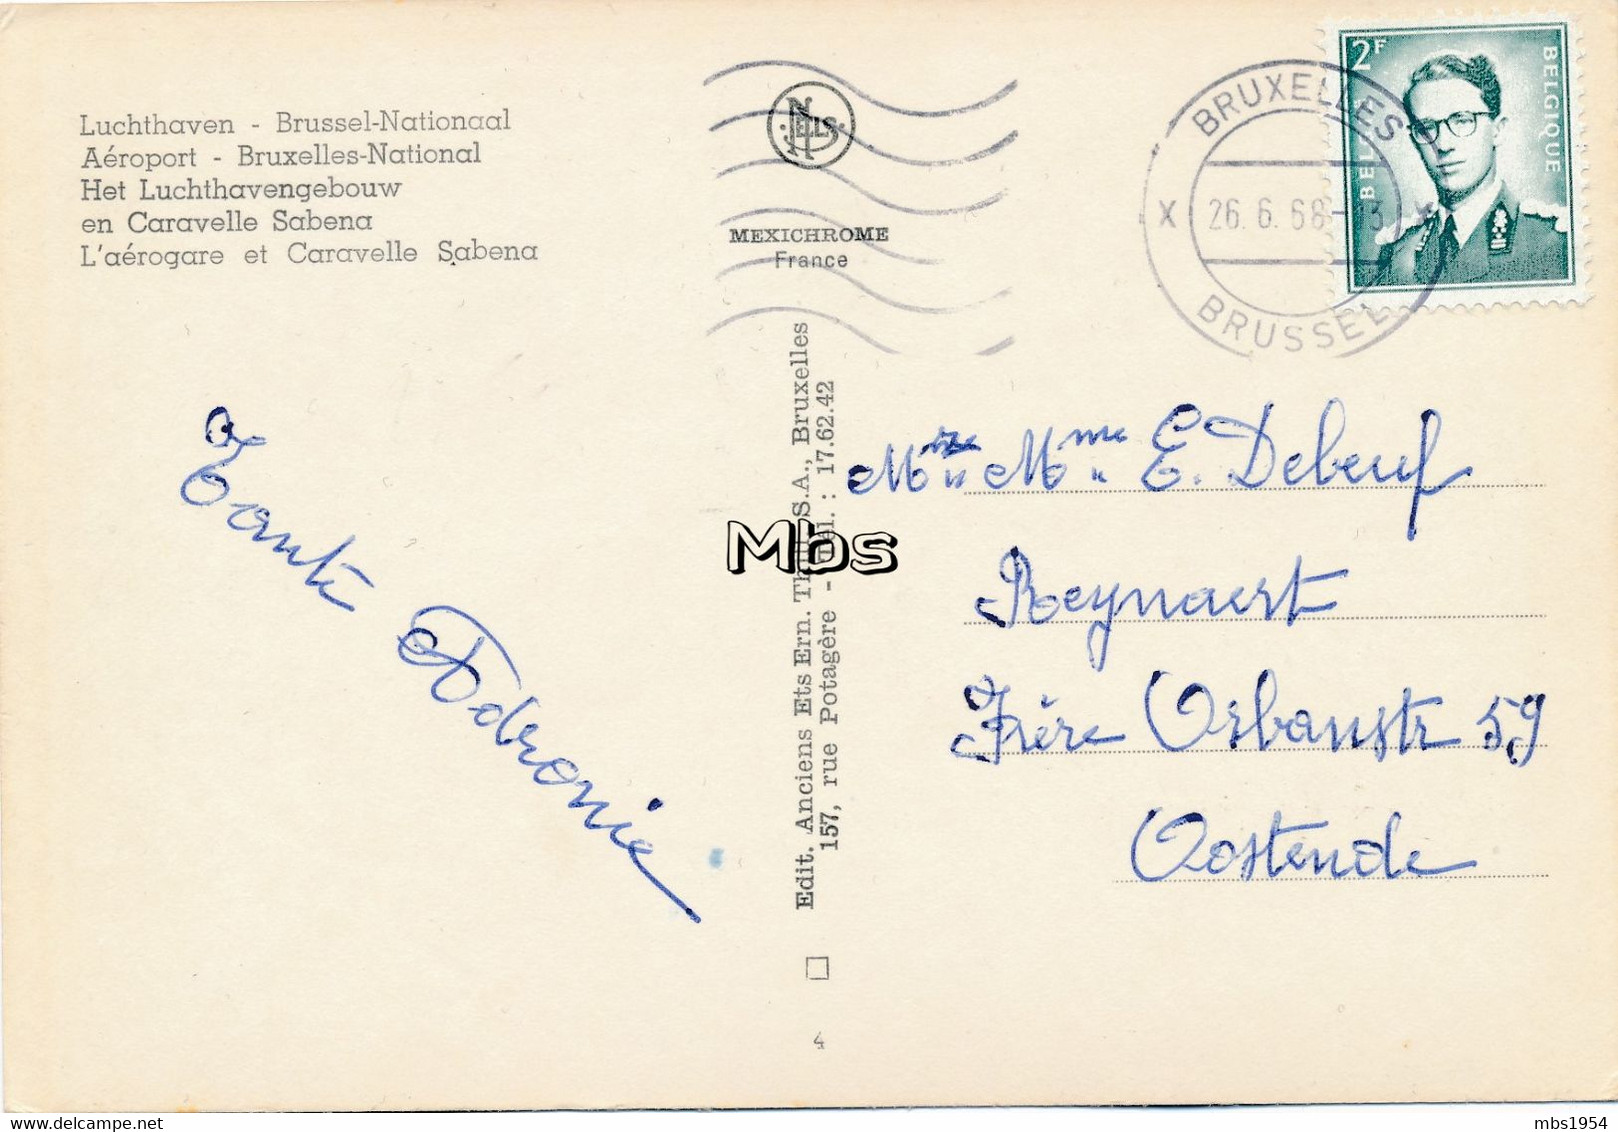 Luchthaven - Brussel-Nationaal
Aéroport - Bruxelles-National
Het Luchthavengebouw
en Caravelle Sabena
L'aérogare et Caravelle Sabena
NELS
MEXICHROME
France
BRUXELLES
26.6.68
BRUSSEL
2F
BELGIQUE
Edit. Anciens Ets Ern. Thill S.A., Bruxelles
157, rue Potagère - Tel. : 17.62.42
Mbs
Tante
Mme E. Debeuf
Reynaert
Frère Orbanstr 59
Oostende
4
mbs1954